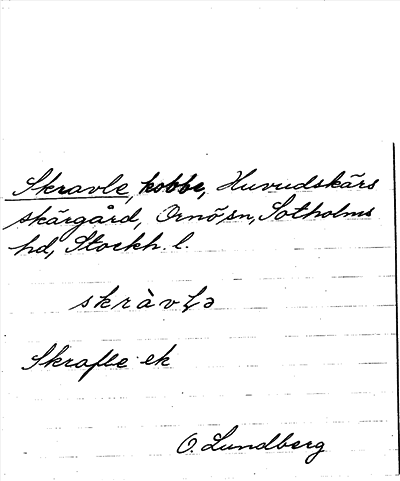 Skravle, kobbe, Huvudskärs
skärgård, Ornö sn, Sotholms
hd, Stockh. l.
skràvḷə
Skrafle ek
O. Lundberg